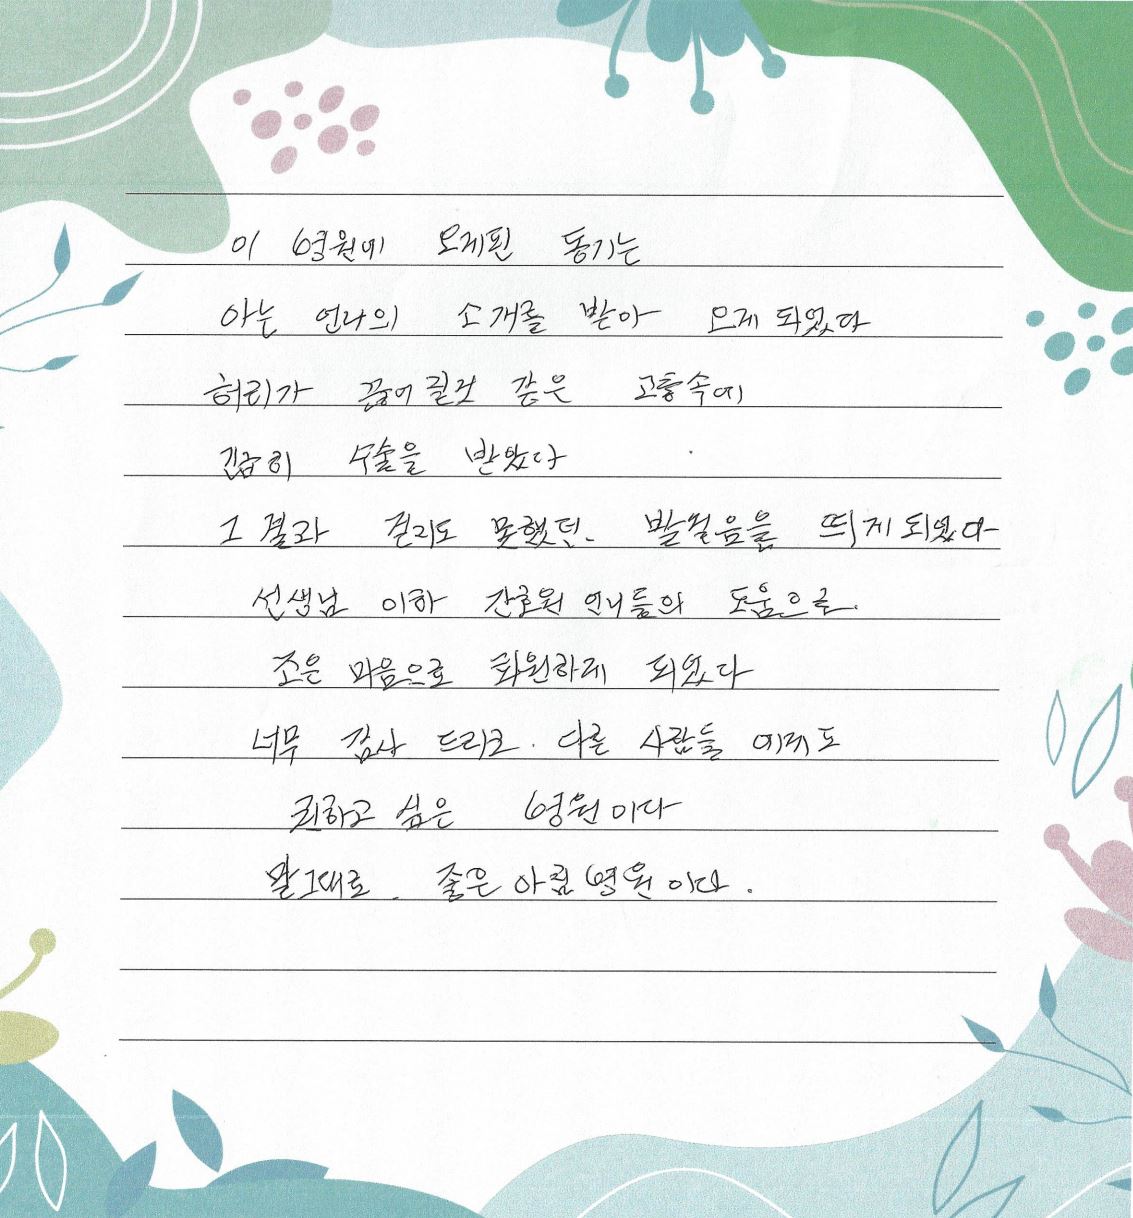 이 병원에 오게된 동기는
아는 언니의 소개를 받아 오게 되었다
허리가 끊어질것 같은 고통속에
긴급히 수술을 받았다
그 결과 걷지도 못했던. 발걸음을 띄게 되었다
선생님 이하 간호원 언니들의 도움으로.
조은 마음으로 퇴원하게 되었다
너무 감사 드리고. 다른 사람들 에게도
권하고 싶은 병원이다
말그대로. 좋은 아침 병원 이다.